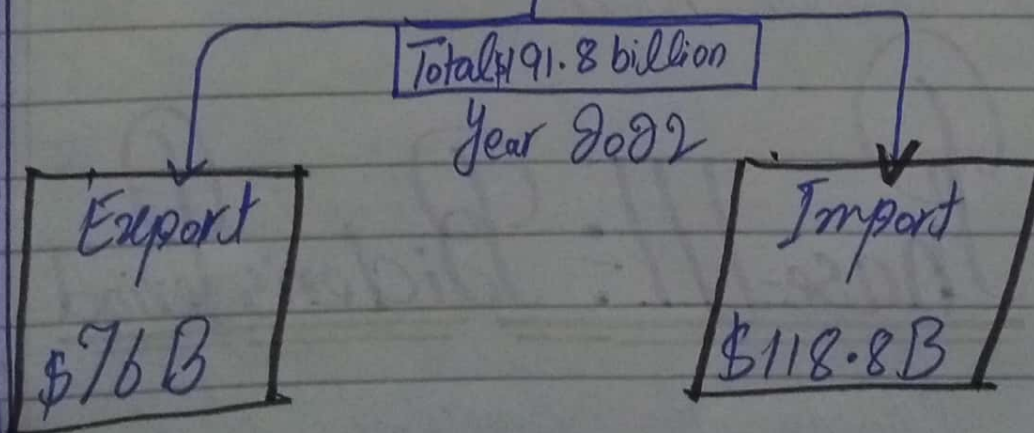 Total $191.8 billion
Year 2022
Export
$76 B
Import
$118.8B